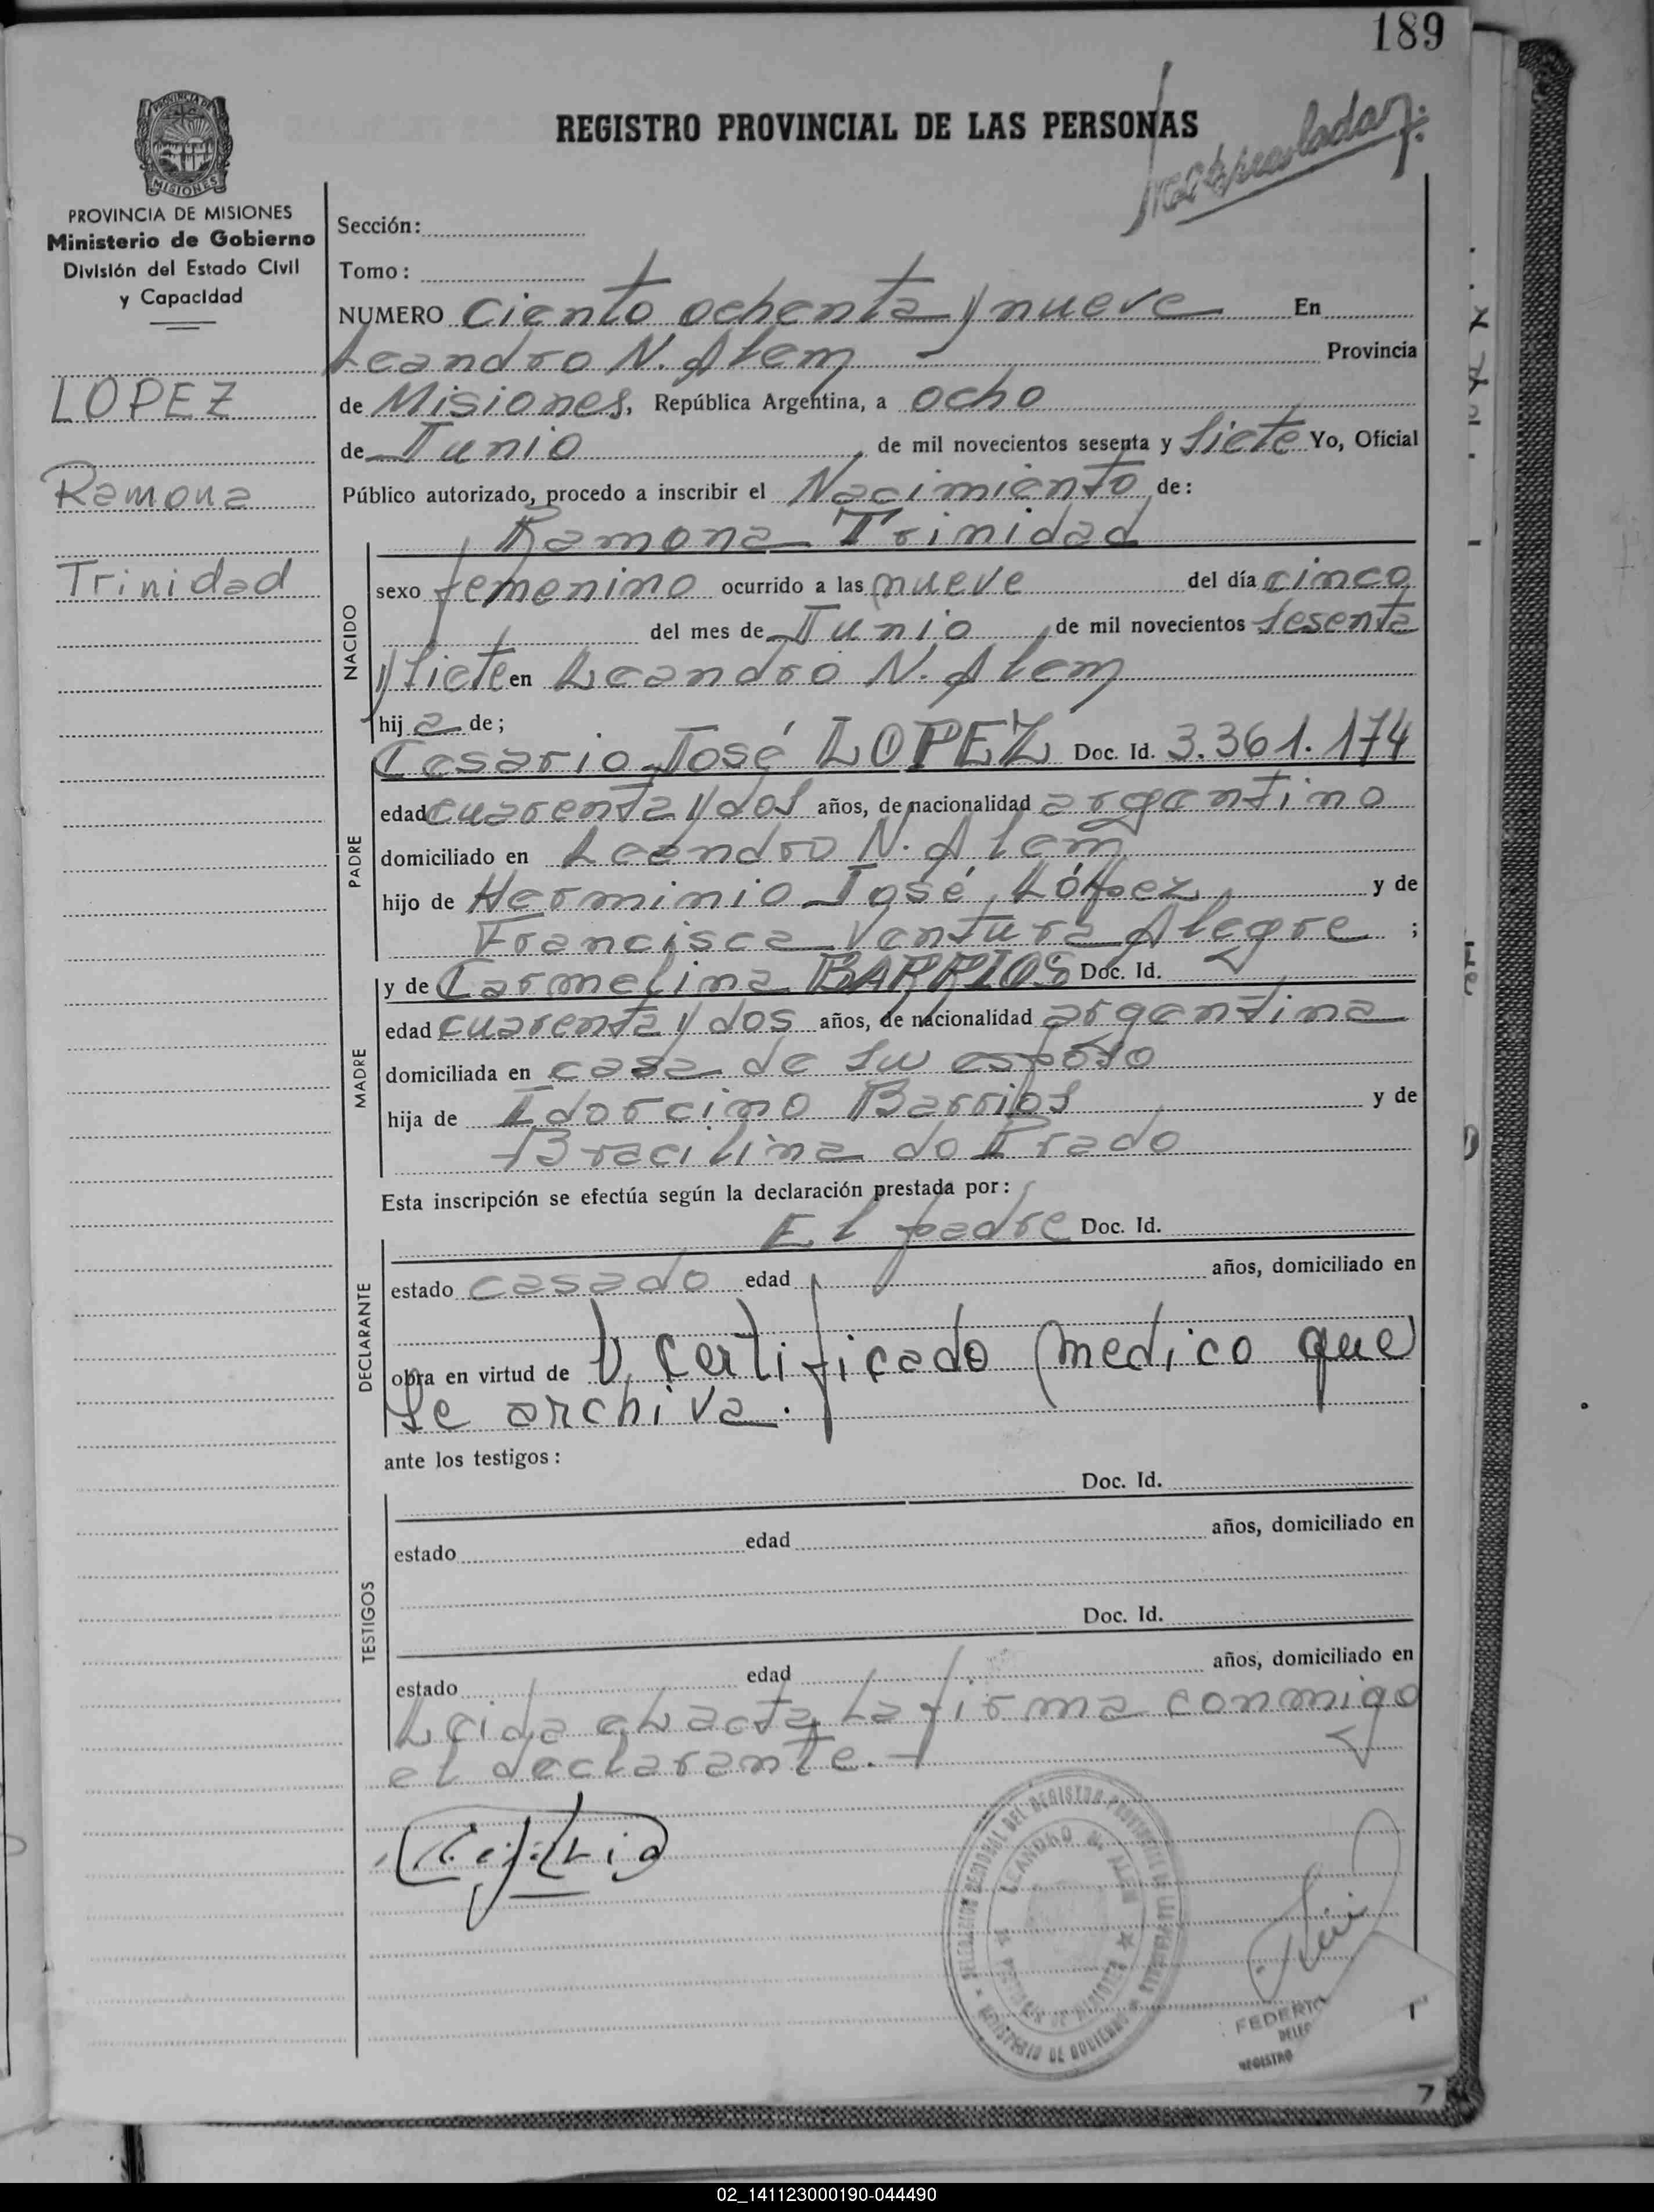 189
REGISTRO PROVINCIAL DE LAS PERSONAS
PROVINCIA DE MISIONES
MISIONES
PROVINCIA DE MISIONES
Ministerio de Gobierno
División del Estado Civil
y Capacidad
LOPEZ
Ramona
Trinidad
Sección:
Tomo:
NUMERO Ciento ochenta y nueve En
Leandro N. Alem Provincia
de Misiones, República Argentina, a ocho
de Junio de mil novecientos sesenta y siete Yo, Oficial
Público autorizado, procedo a inscribir el Nacimiento de:
Ramona Trinidad
NACIDO
sexo femenino ocurrido a las nueve del día cinco
del mes de Junio de mil novecientos sesenta
y siete en Leandro N. Alem
hij a de;
Cesario José LOPEZ Doc. Id. 3.361.174
PADRE
edad cuarenta y dos años, de nacionalidad argentino
domiciliado en Leandro N. Alem
hijo de Herminio José López y de
Francisca Ventura Alegre ;
y de Carmelina BARRIOS Doc. Id.
MADRE
edad cuarenta y dos años, de nacionalidad argentina
domiciliada en casa de su esposo
hija de Idorcino Barrios y de
Bracilina do Prado
Esta inscripción se efectúa según la declaración prestada por:
El padre Doc. Id.
DECLARANTE
estado casado edad años, domiciliado en
obra en virtud de certificado medico que
se archiva.
ante los testigos:
Doc. Id.
TESTIGOS
estado edad años, domiciliado en
Doc. Id.
estado edad años, domiciliado en
Leida el acta, la firma conmigo
el declarante.-
DELEGACION REGIONAL DEL REGISTRO PROVINCIAL DE LAS PERSONAS
LEANDRO N. ALEM
MINISTERIO DE GOBIERNO
PROVINCIA DE MISIONES
FEDERIC
DELEG
REGISTRO
7
02_141123000190-044490